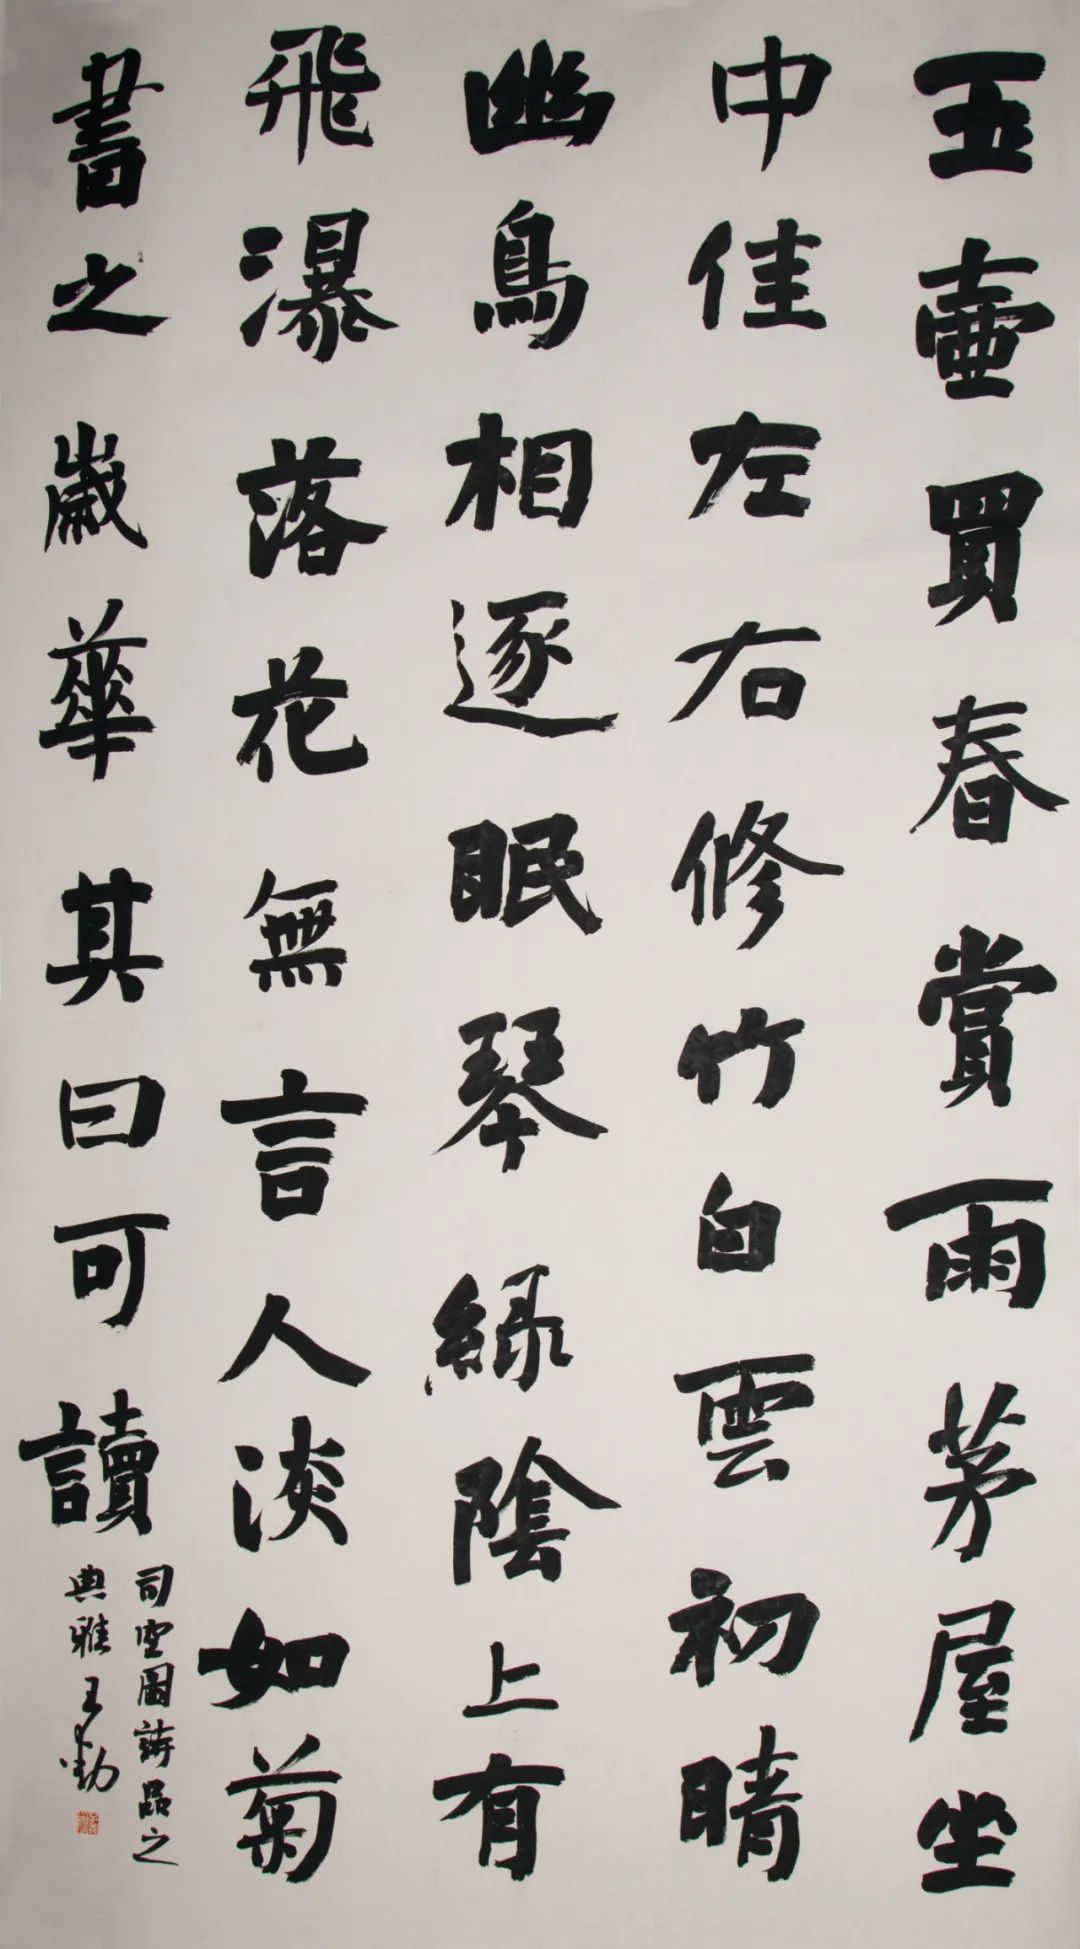 玉壺買春賞雨茅屋坐
中佳左右修竹白雲初晴
幽鳥相逐眠琴綠陰上有
飛瀑落花無言人淡如菊
書之歲華其曰可讀
司空圖詩品之
典雅王